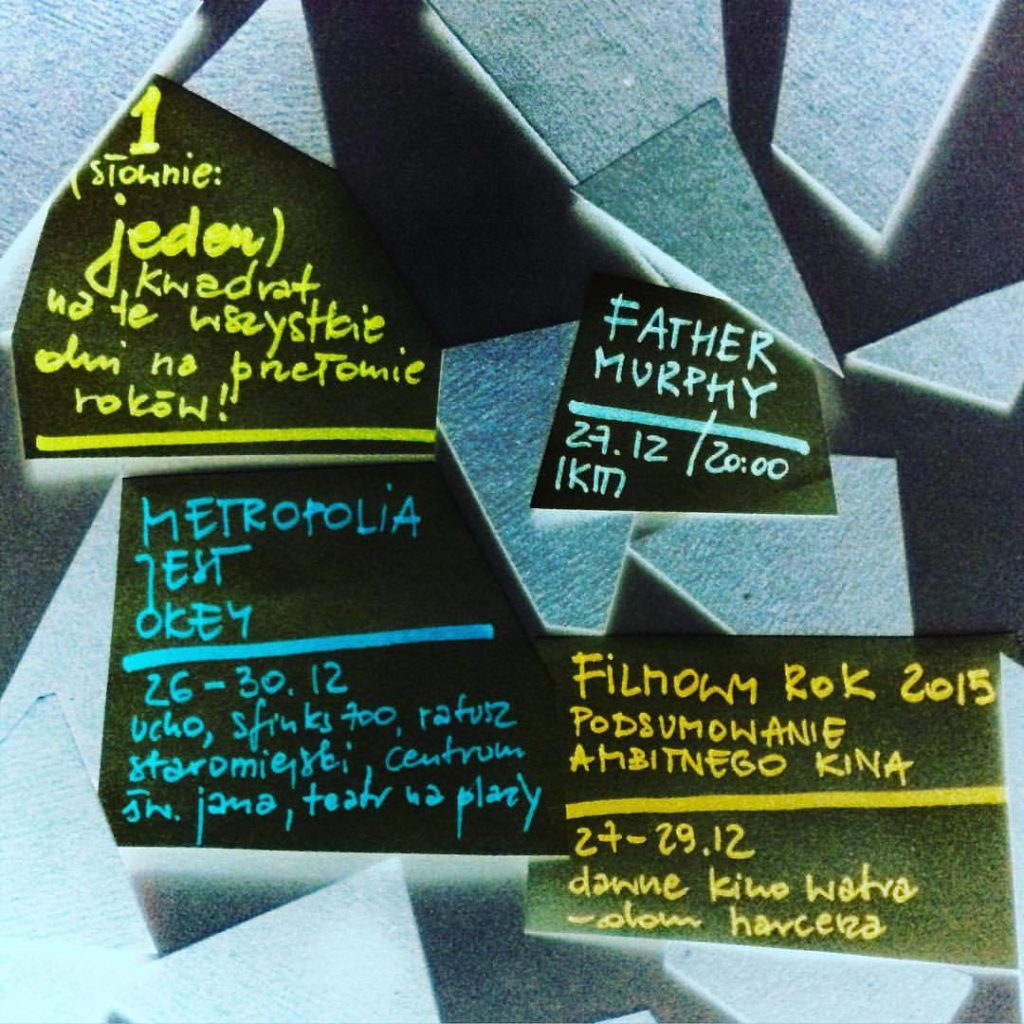 1
(słownie:
jeden)
kwadrat
na te wszystkie
dni na przełomie
roków!
FATHER
MURPHY
27.12 / 20:00
1KM
METROPOLIA
JEST
OKEY
26-30.12
ucho, sfinks 700, ratusz
staromiejski, centrum
św. jana, teatr na plaży
FILMOWY ROK 2015
PODSUMOWANIE
AMBITNEGO KINA
27-29.12
dawne kino watra
-dom harcerza